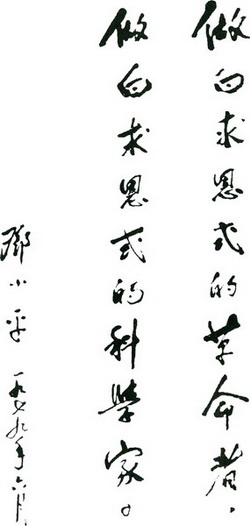 做白求恩式的革命者，
做白求恩式的科学家。
邓小平 一九七九年六月